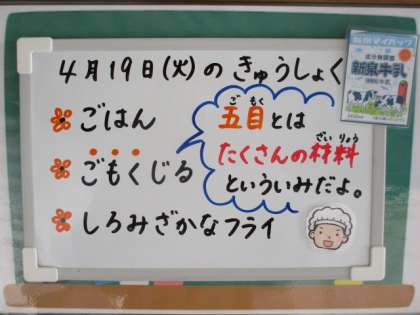 4月19日(火)のきゅうしょく
ごはん
ごもくじる
しろみざかなフライ
ごもく
五目とは
ざいりょう
たくさんの材料
といういみだよ。
新泉牛乳